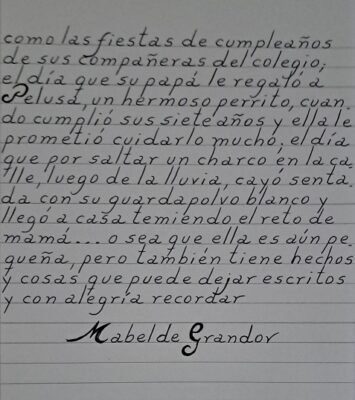 como las fiestas de cumpleaños
de sus compañeras del colegio;
el día que su papá le regaló a
Pelusa, un hermoso perrito, cuan.
do cumplió sus siete años y ella le
prometió cuidarlo mucho; el día
que por saltar un charco en la ca.
lle, luego de la lluvia, cayó senta.
da con su guardapolvo blanco y
llegó a casa temiendo el reto de
mamá... o sea que ella es aún pe.
queña, pero también tiene hechos
y cosas que puede dejar escritos
y con alegría recordar
Mabel de Grandov